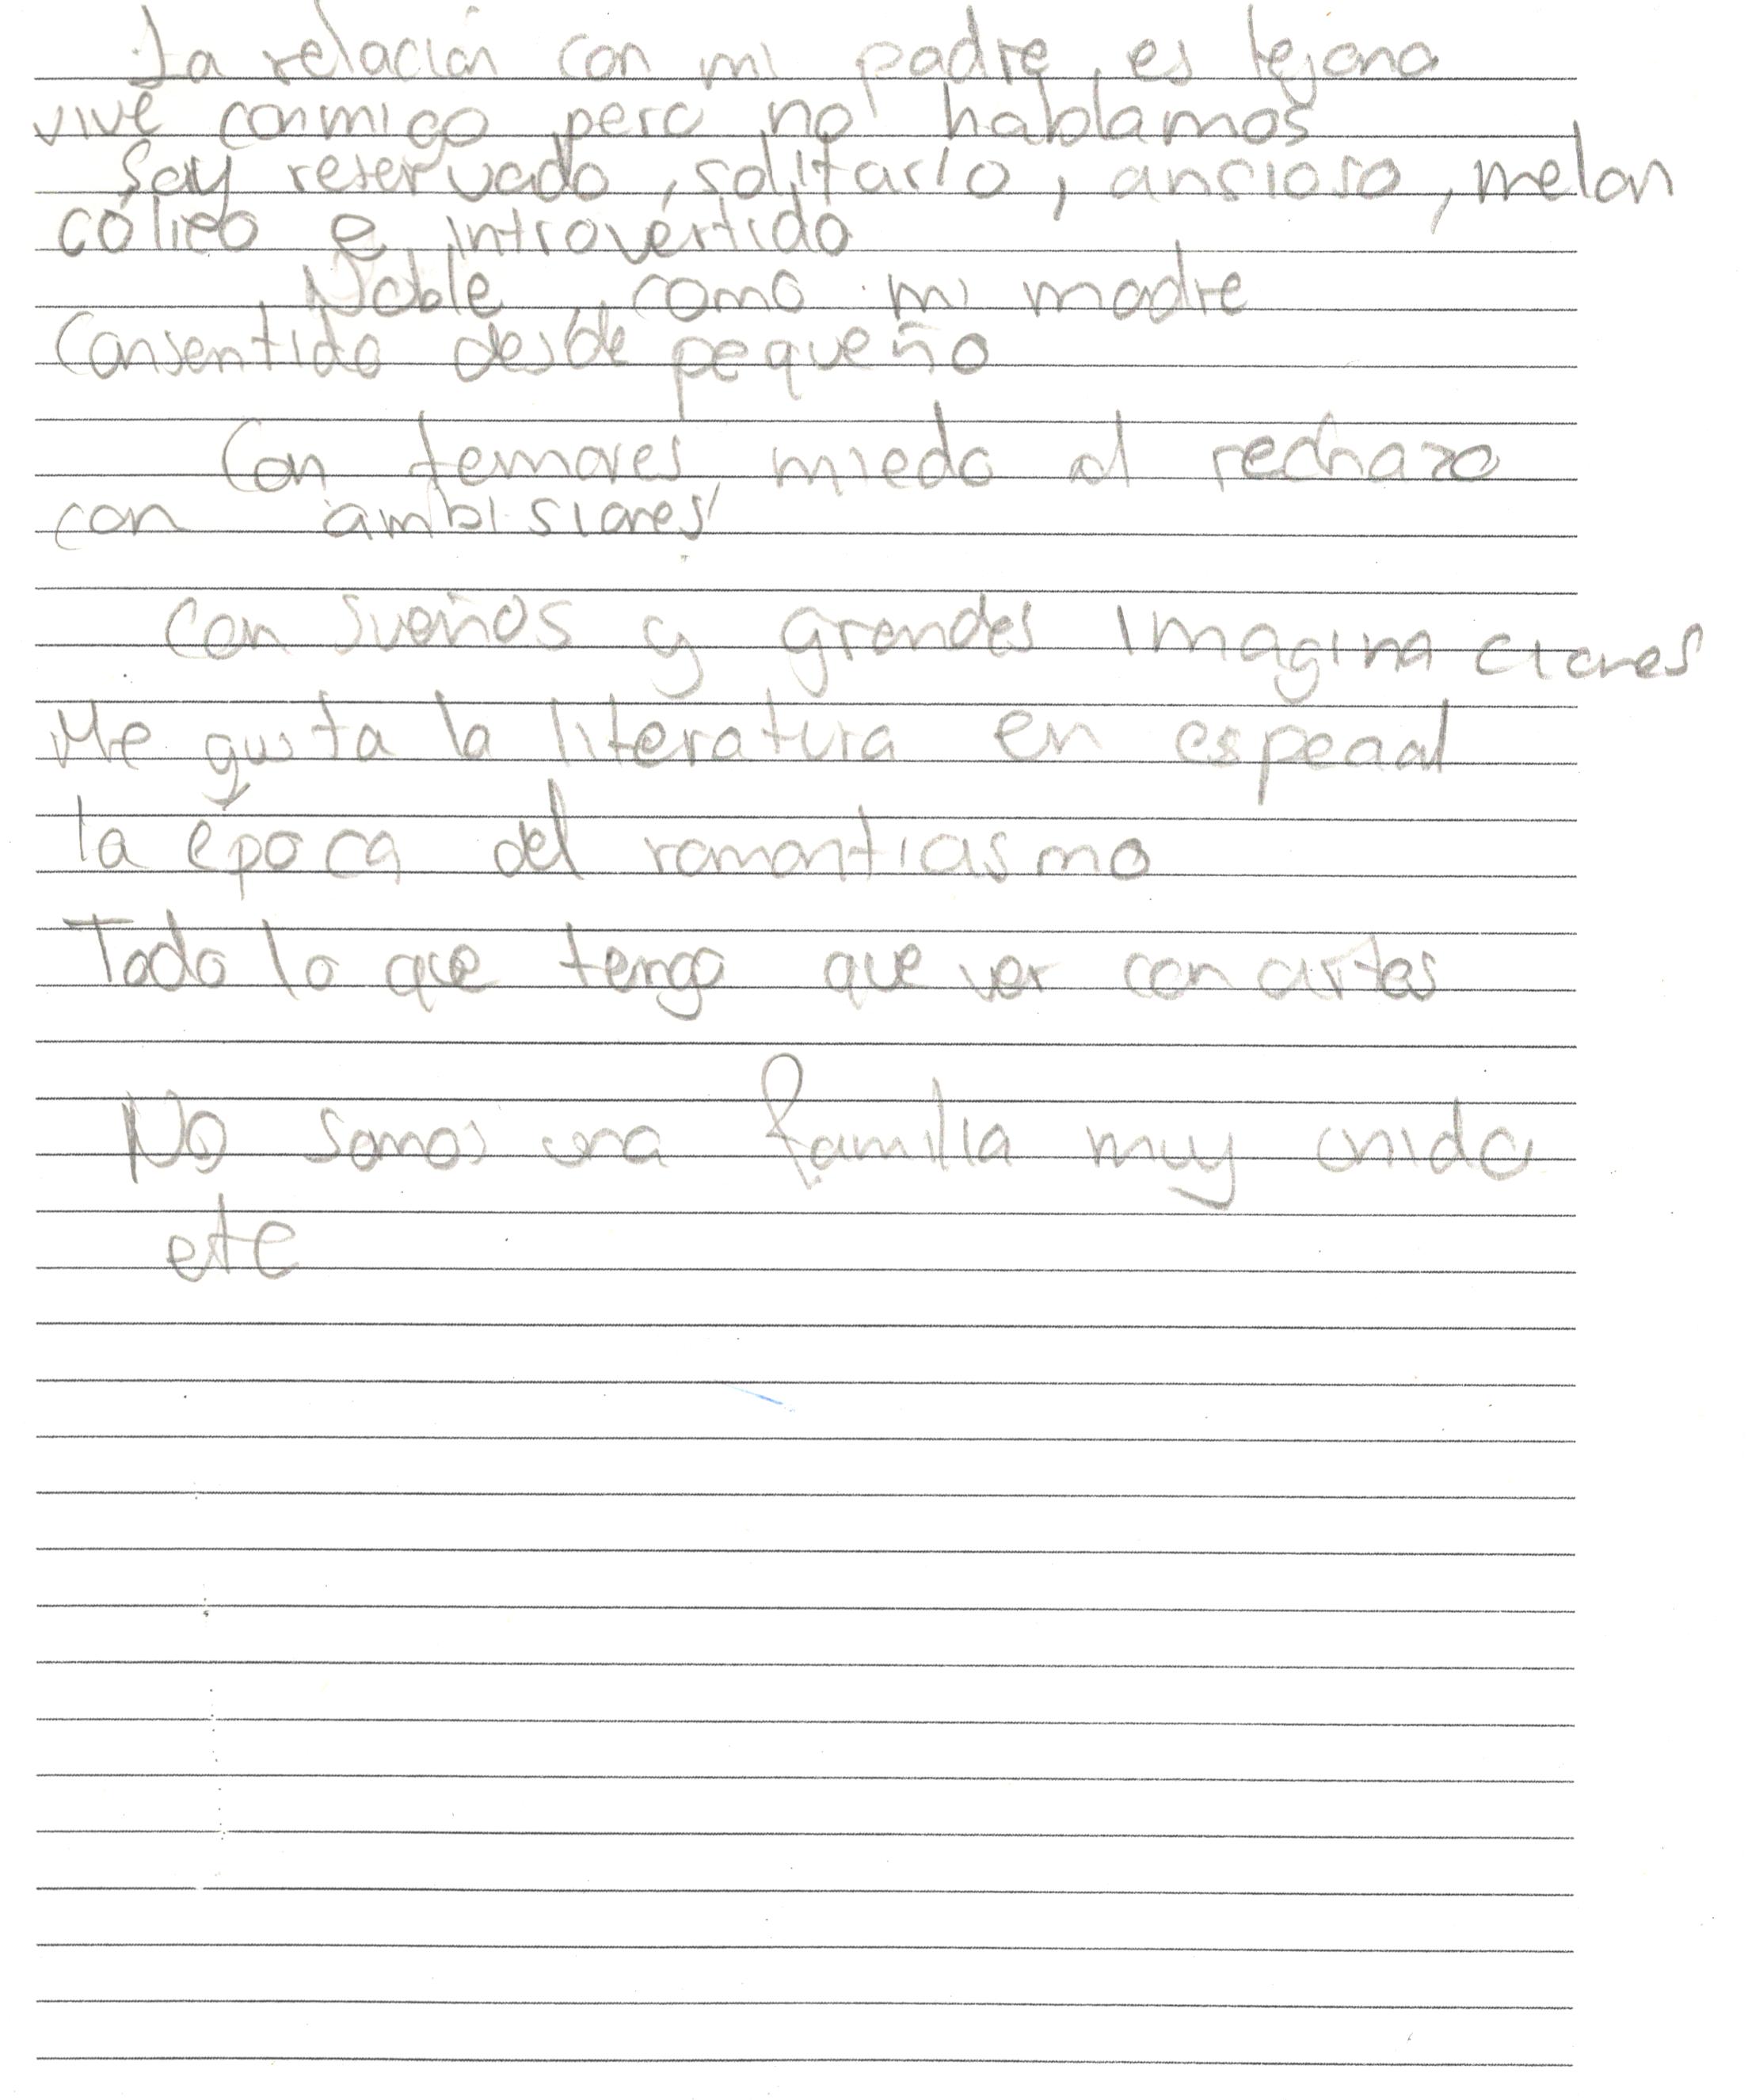 La relación con mi padre, es lejana
vive conmigo pero no hablamos
Soy reservado, solitario, ansioso, melan
cólico e introvertido
Noble como mi madre
Consentido desde pequeño
Con temores miedo al rechazo
con ambisiones
Con sueños y grandes imaginaciones
Me gusta la literatura en especial
la época del romanticismo
Todo lo que tenga que ver con artes
No somos una familia muy unida
etc